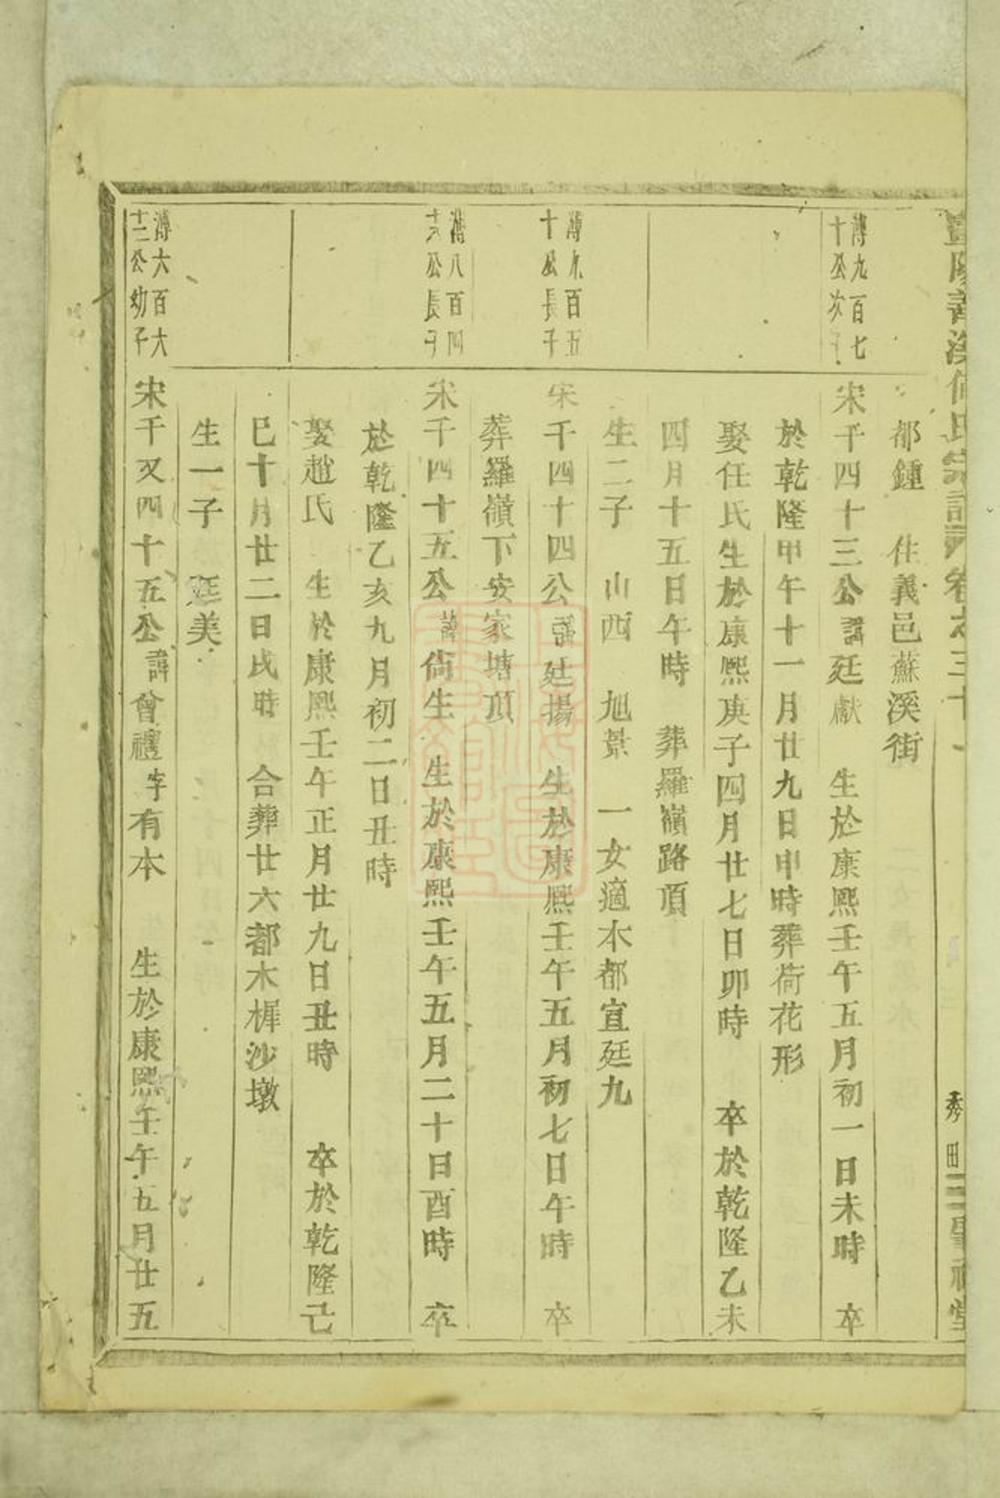 都鍾 住義邑蘇溪街
溥九百七
十公次子
宋千四十三公諱廷獻 生於康熙壬午五月初一日未時 卒
於乾隆甲午十一月廿九日申時葬荷花形
娶任氏生於康熙庚子四月廿七日卯時 卒於乾隆乙未
四月十五日午時 葬羅嶺路頂
生二子 山西 旭景 一女適本都宣廷九
溥九百五
十公長子
宋千四十四公諱廷揚 生於康熙壬午五月初七日午時 卒
葬羅嶺下安家塘頂
溥八百四
十六公長子
宋千四十五公諱尚生 生於康熙壬午五月二十日酉時 卒
於乾隆乙亥九月初二日丑時
娶趙氏 生於康熙壬午正月廿九日丑時 卒於乾隆己
巳十月廿二日戌時 合葬廿六都木樨沙墩
生一子 廷美
溥六百六
十二公幼子
宋千又四十五公諱曾禮字有本 生於康熙壬午五月廿五
秀田